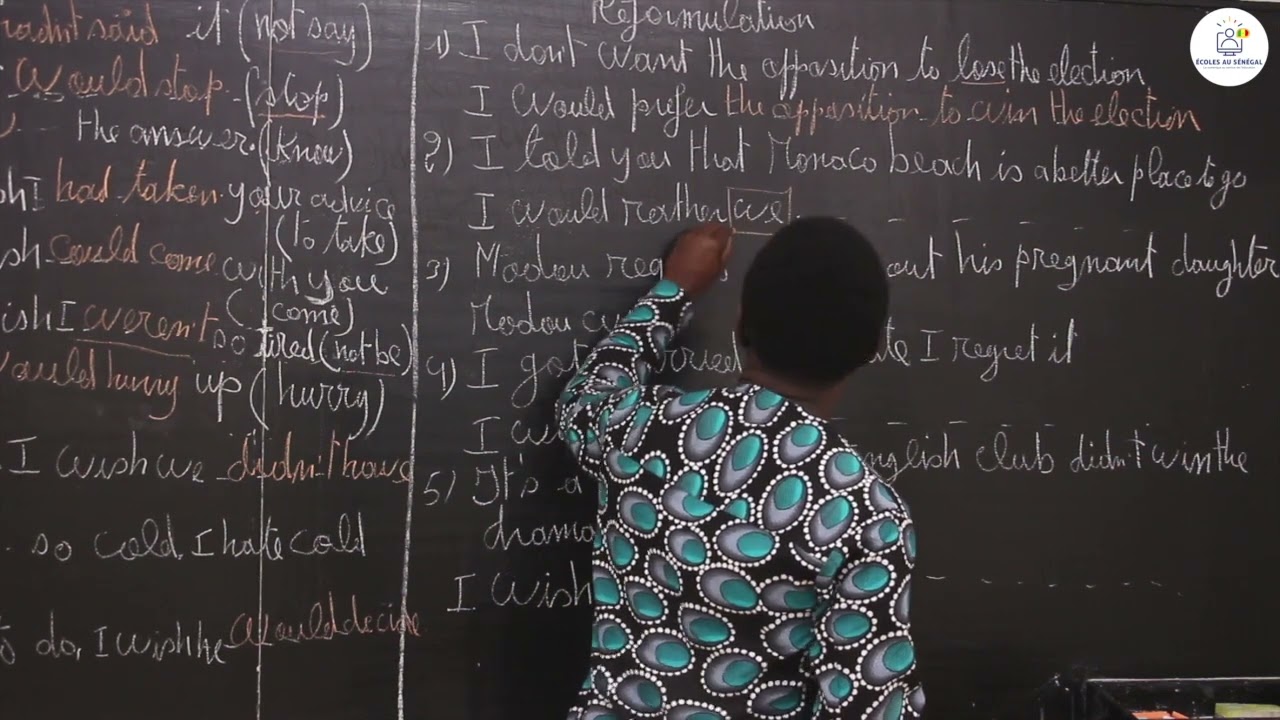 hadn't said it (not say)
would stop (stop)
the answer. (know)
I had taken your advice
(to take)
could come with you
(come)
wish I weren't so tired (not be)
would hurry up (hurry)
I wish we didn't have
so cold, I hate cold
to do, I wish he would decide
Reformulation
1) I don't want the opposition to lose the election
I would prefer the opposition to win the election
2) I told you that Monaco beach is a better place to go
I would rather we
3) Modou out his pregnant daughter
Modou
4) I got I regret it
I
5) It's a English club didn't win the
I wish
ÉCOLES AU SÉNÉGAL